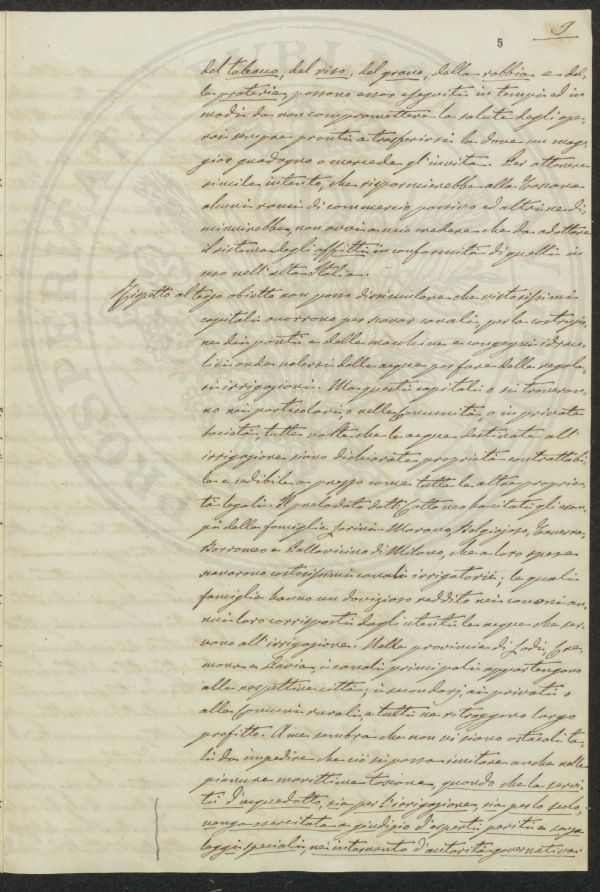 9
5
del tabacco, del riso, del grano, della robbia e del-
le praterie, possono esser eseguiti in tempi ed in
modi da non compromettere la salute degli ope-
rai sempre pronti a trasferirsi là dove un mag-
gior guadagno o mercede gl'invita. Per ottenere
simile intento, che risparmierebbe alla Toscana
alcuni rami di commercio passivo ed altri ne di-
minuirebbe, non avvi a mio credere che da adottare
il sistema degli affitti in conformità di quelli in
uso nell'alta Italia.
Rispetto al terzo obietto non posso dissimulare che vistosissimi
capitali occorrono per scavar canali, per la costruzio-
ne dei ponti e delle macchine e congegni idrau-
lici onde valersi delle acque per fare delle regola-
ri irrigazioni. Ma questi capitali o si troveran-
no nei particolari, o nelle Comunità o in private
società, tutte volte che le acque destinate all'
irrigazione siano dichiarate proprietà contrattabi-
le e cedibile a prezzo come tutte le altre proprie-
tà legali. Il prelodato dott. Cattaneo ha citati gli esem-
pi delle famiglie Marara, Belgiojoso, Taverna,
Borromeo e Pallavicino di Milano, che a loro spese
scavarono costosissimi canali irrigatorii; le quali
famiglie hanno un dovizioso reddito nei canoni an-
nui loro corrisposti dagli utenti le acque che ser-
vono all'irrigazione. Nelle provincie di Lodi, Cre-
mona e Pavia, i canali principali appartengono
alle respettive città, i secondarj, ai privati o
alle Comuni rurali, e tutti ne ritraggono largo
profitto. A me sembra che non vi siano ostacoli ta-
li da impedire che ciò si possa imitare anche nelle
pianure marittime toscane, quando che la servi-
tù d'acquedotto, sia per l'irrigazione, sia per lo scolo,
venga esercitata a giudizio d'esperti periti e con
leggi speciali, nei intervento d'autorità governativa
PROSPERITATI PUBLICAE